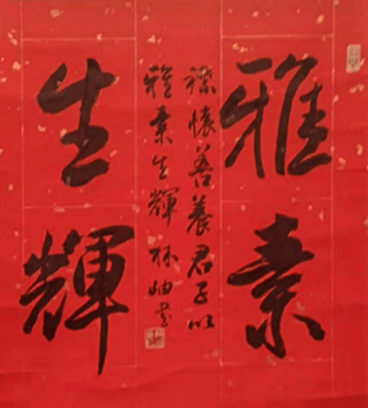 雅素
生輝
襟懷善養君子以
雅素生輝林岫書